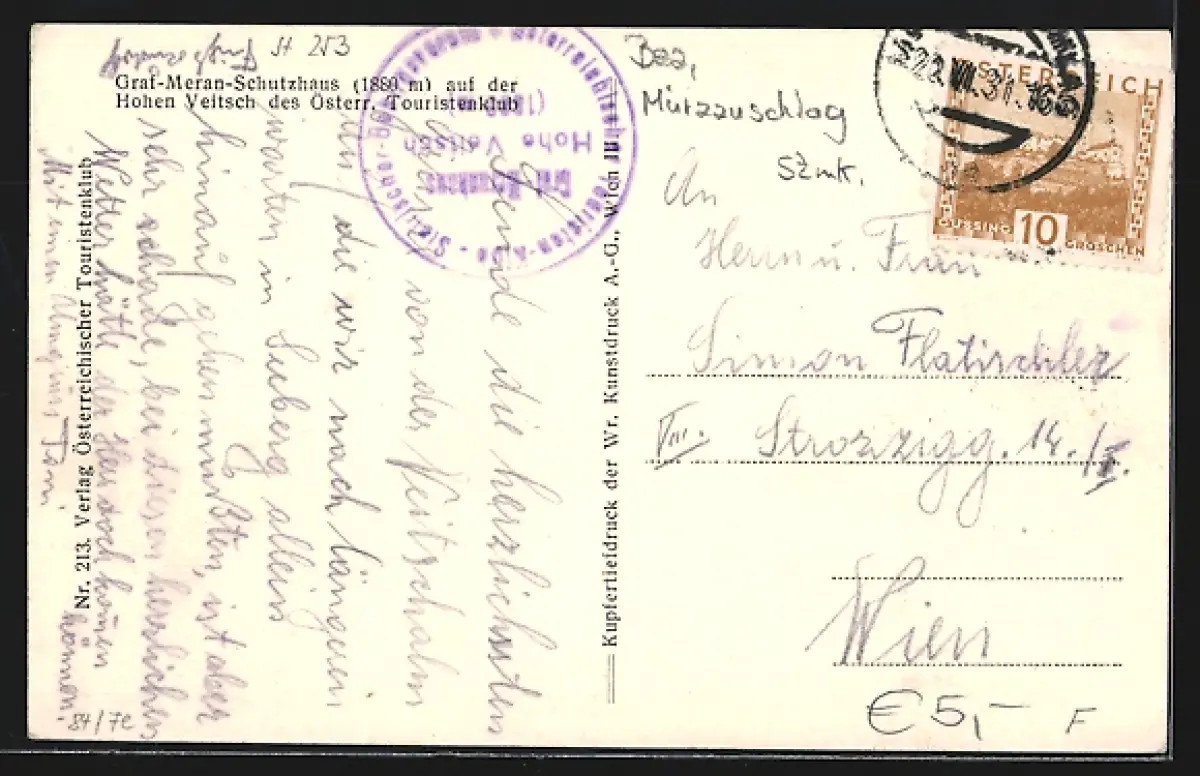 St 253
Graf-Meran-Schutzhaus (1880 m) auf der
Hohen Veitsch des Österr. Touristenklub
Österreichischer Touristen-Klub - Steirischer
Graf Meranhaus
Hohe Veitsch
(1880 m)
Sende die herzlichsten
Grüsse von der Veitschalm
auf die wir nach längerem
warten in Seeberg allein
hinauf gehen mußten, ist aber
sehr schade, bei diesen herrlichen
Wetter hätte der Hans doch kommen
können
Mit einen Toni
Nr. 213. Verlag Österreichischer Touristenklub
-84/7c
Kupfertiefdruck der Wr. Kunstdruck A.-G., Wien III
Bez.
Mürzzuschlag
Stmk.
22.VII.31.16
ÖSTERREICH
GÜSSING 10 GROSCHEN
An
Herrn u. Frau
Simon Flatischler
VIII. Strozzigg. 14./I.
Wien
€5,-
F